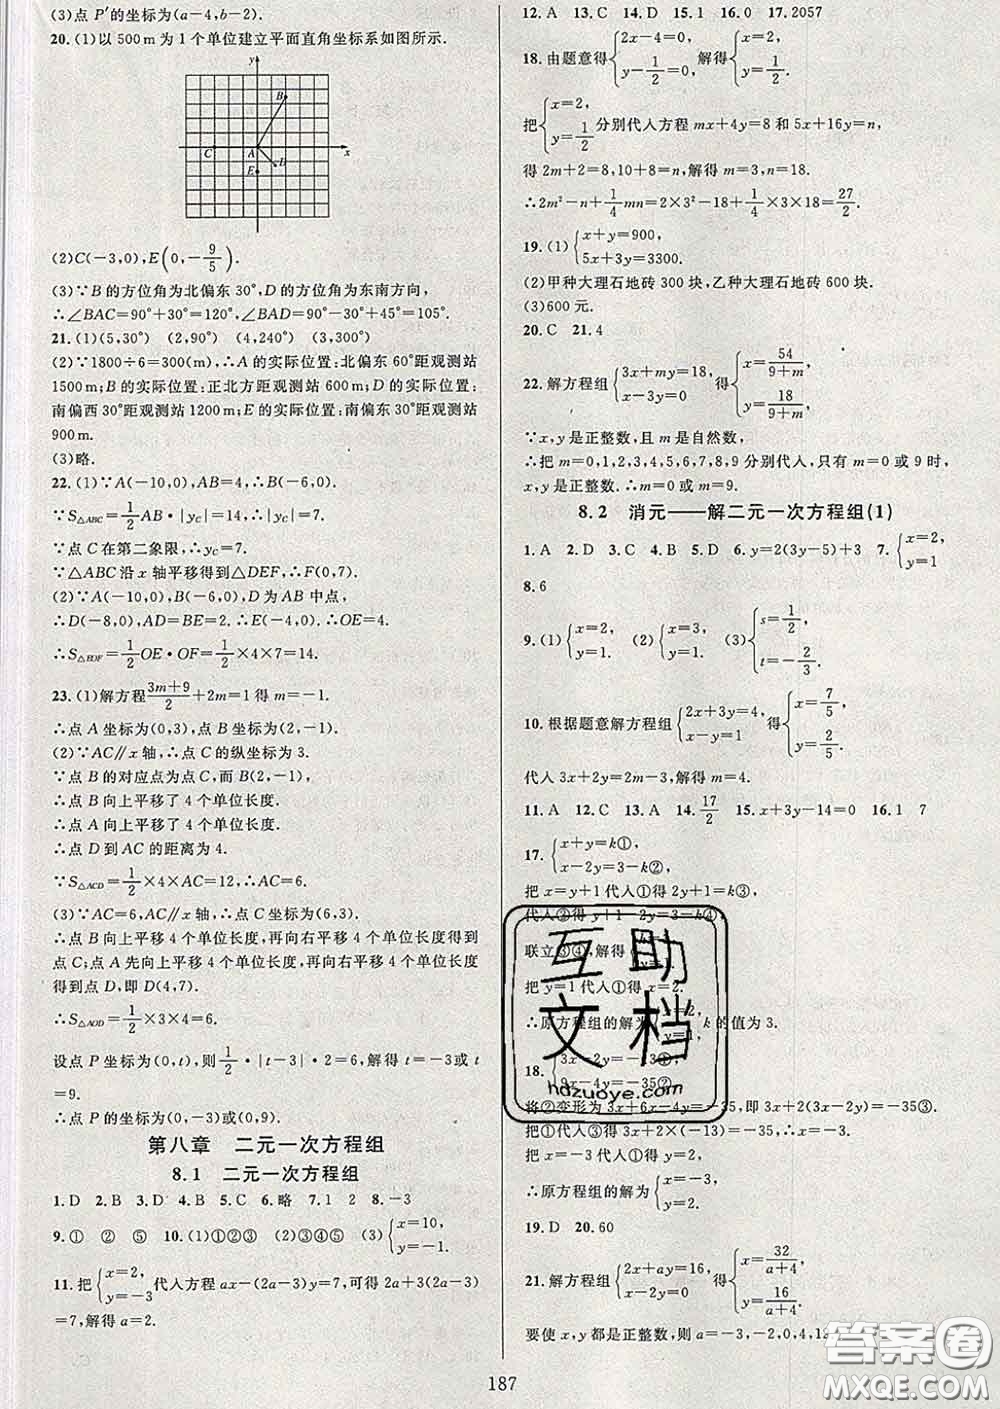 (3)点 P′的坐标为(a-4,b-2).
20.(1)以 500 m 为 1 个单位建立平面直角坐标系如图所示.
y
B
C A D x
E
(2)C(-3,0),E(0,-9/5).
(3)∵B 的方位角为北偏东 30°,D 的方位角为东南方向,
∴∠BAC=90°+30°=120°,∠BAD=90°-30°+45°=105°.
21.(1)(5,30°) (2,90°) (4,240°) (3,300°)
(2)∵1800÷6=300(m),∴A 的实际位置:北偏东 60°距观测站
1500 m;B 的实际位置:正北方距观测站 600 m;D 的实际位置:
南偏西 30°距观测站 1200 m;E 的实际位置:南偏东 30°距观测站
900 m.
(3)略.
22.(1)∵A(-10,0),AB=4,∴B(-6,0).
∵S△ABC=1/2 AB·|yC|=14,∴|yC|=7.
∵点 C 在第二象限,∴yC=7.
∵△ABC 沿 x 轴平移得到△DEF,∴F(0,7).
(2)∵A(-10,0),B(-6,0),D 为 AB 中点,
∴D(-8,0),AD=BE=2.∴E(-4,0).∴OE=4.
∴S△EOF=1/2 OE·OF=1/2×4×7=14.
23.(1)解方程 (3m+9)/2+2m=1 得 m=-1.
∴点 A 坐标为(0,3),点 B 坐标为(2,-1).
(2)∵AC∥x 轴,∴点 C 的纵坐标为 3.
∵点 B 的对应点为点 C,而 B(2,-1),
∴点 B 向上平移了 4 个单位长度.
∴点 A 向上平移了 4 个单位长度.
∴点 D 到 AC 的距离为 4.
∵S△ACD=1/2×4×AC=12,∴AC=6.
(3)∵AC=6,AC∥x 轴,∴点 C 的坐标为(6,3).
∴点 B 向上平移 4 个单位长度,再向右平移 4 个单位长度得到
点 C;点 A 先向上平移 4 个单位长度,再向右平移 4 个单位长度
得到点 D,即 D(4,7).
∴S△AOD=1/2×3×4=6.
设点 P 坐标为(0,t),则 1/2·|t-3|·2=6,解得 t=-3 或 t
=9.
∴点 P 的坐标为(0,-3)或(0,9).
第八章 二元一次方程组
8.1 二元一次方程组
1.D 2.B 3.D 4.B 5.C 6.略 7.1 2 8.-3
9.① ② ⑤ 10.(1)①②③ (2)③④⑤ (3){x=10, y=-1.
11.把{x=2, y=-3 代入方程 ax-(2a-3)y=7,可得 2a+3(2a-3)
=7,解得 a=2.
12.A 13.C 14.D 15.1 16.0 17.2057
18.由题意得{2x-4=0, y-1/2=0, 解得{x=2, y=1/2.
把{x=2, y=1/2 分别代入方程 mx+4y=8 和 5x+16y=n,
得 2m+2=8,10+8=n,解得 m=3,n=18.
∴2m²-n+1/4 mn=2×3²-18+1/4×3×18=27/2.
19.(1){x+y=900, 5x+3y=3300.
(2)甲种大理石地砖 300 块,乙种大理石地砖 600 块.
(3)600 元.
20.C 21.4
22.解方程组{3x+my=18, x-3y=0 得{x=54/(9+m), y=18/(9+m).
∵x,y 是正整数,且 m 是自然数,
∴把 m=0,1,2,3,4,5,6,7,8,9 分别代入,只有 m=0 或 9 时,
x,y 是正整数.∴m=0 或 m=9.
8.2 消元——解二元一次方程组(1)
1.A 2.D 3.C 4.B 5.D 6.y=2(3y-5)+3 7.{x=2, y=1
8.6
9.(1){x=2, y=1. (2){x=3, y=1. (3){s=1/2, t=-2/3.
10.根据题意解方程组{2x+3y=4, x-y=1 得{x=7/5, y=2/5.
代入 3x+2y=2m-3,解得 m=4.
11.A 12.C 13.A 14.17/2 15.x+3y-14=0 16.1 7
17.{x+y=k①, x-2y=3-k②,
把 x=y+1 代入①得 2y+1=k③,
代入②得 y+1-2y=3-k④,
联立③④,解得
把 y=1 代入①得 x=2.
∴原方程组的解为 k 的值为 3.
18.{3x-2y=-13①, 9x-4y=-35②
将②变形为 3x+6x-4y=-35③.
把①代入③得 3x+2×(-13)=-35,∴x=-3.
把 x=-3 代入①得 y=2.
∴原方程组的解为{x=-3, y=2.
19.D 20.60
21.解方程组{2x+ay=16, x-2y=0 得{x=32/(a+4), y=16/(a+4).
要使 x,y 都是正整数,则 a=-3,-2,0,4,12
187
互助文档
hdzuoye.com
答案圈
MXQE.COM